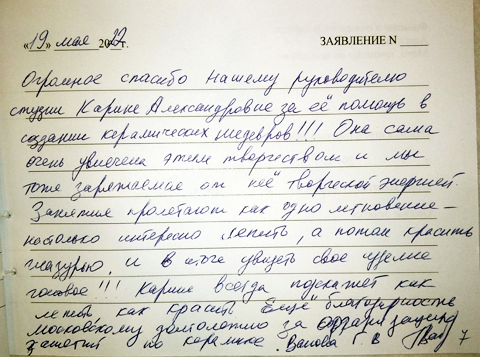 «19» мая 2022г. ЗАЯВЛЕНИЕ N
Огромное спасибо нашему руководителю
студии Карине Александровне за её помощь в
создании керамических шедевров!!! Она сама
очень увлечена этим творчеством и мы
тоже заряжаемся от неё творческой энергией.
Занятия пролетают как одно мгновение –
настолько интересно лепить, а потом красить
глазурью, и в итоге увидеть свое изделие
готовое!!! Карине всегда подскажет как
лепить, как красить. Ещё благодарность
московскому долголетию за
занятий по керамике.